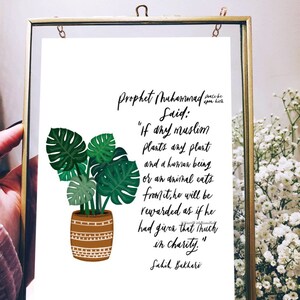 Prophet Muhammad peace be upon him
Said:
"If any muslim
plants any plant
and a human being
or an animal eats
from it, he will be
rewarded as if he
had given that much
in charity."
Sahih Bukhari